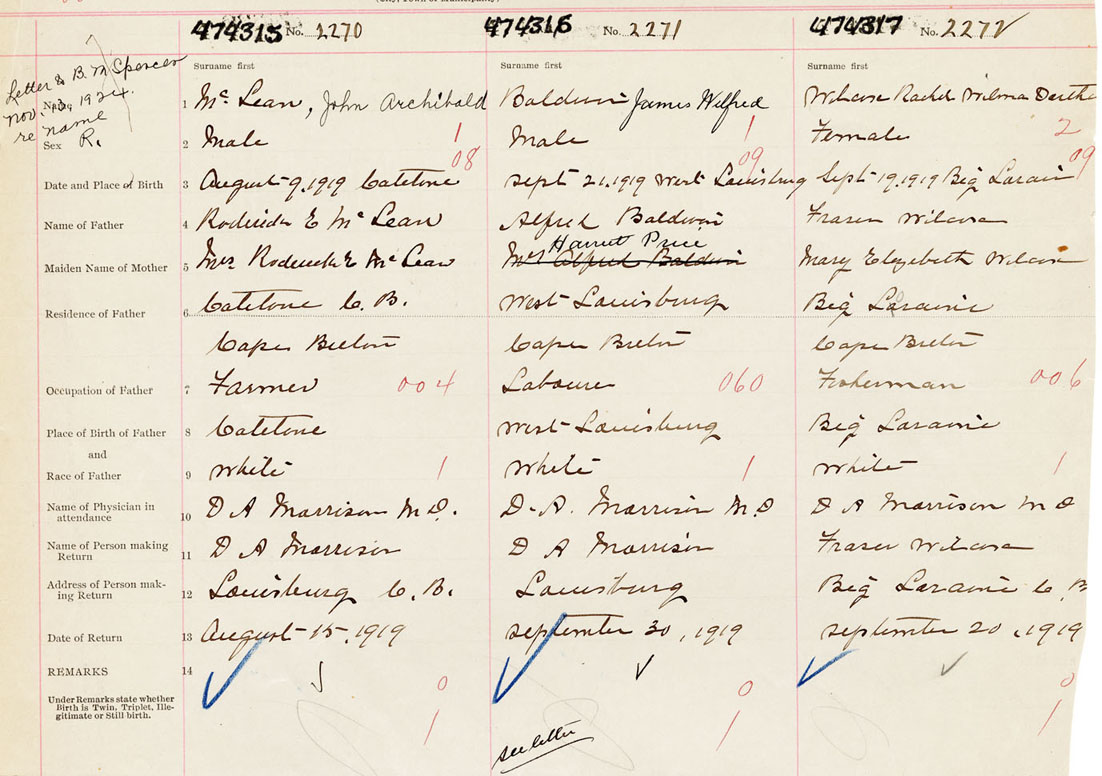 (City, Town or Municipality)
474315 No. 2270 474316 No. 2271 474317 No. 2272
Surname first Surname first Surname first
Letter B. M Spencer
Nov. 13, 1924.
re name
R.
Name 1 Mc Lean, John Archibald Baldwin James Wilfred Wilcox Rachel Wilma
Sex 2 Male 1 Male 1 Female 2
08 09 09
Date and Place of Birth 3 August 9, 1919 Catetone Sept 21, 1919 West Louisburg Sept 19, 1919 Big Lorain
Name of Father 4 Roderick E Mc Lean Alfred Baldwin Fraser Wilcox
Harriet Price
Maiden Name of Mother 5 Mrs Roderick E Mc Lean Mrs Alfred Baldwin Mary Elizebeth Wilcox
Residence of Father 6 Catetone C. B. West Louisburg Big Loraine
Cape Breton Cape Breton Cape Breton
Occupation of Father 7 Farmer 004 Labourer 060 Fisherman 006
Place of Birth of Father 8 Catetone West Louisburg Big Loraine
and
Race of Father 9 White 1 White 1 White 1
Name of Physician in
attendance 10 D A Morrison M D. D. A. Morrison M. D D A Morrison M D
Name of Person making
Return 11 D A Morrison D A Morrison Fraser Wilcox
Address of Person mak-
ing Return 12 Louisburg C. B. Louisburg Big Loraine C. B
Date of Return 13 August 15, 1919 September 30, 1919 September 20, 1919
REMARKS 14
0 0 0
Under Remarks state whether
Birth is Twin, Triplet, Ille-
gitimate or Still birth.
1 1 1
see letter